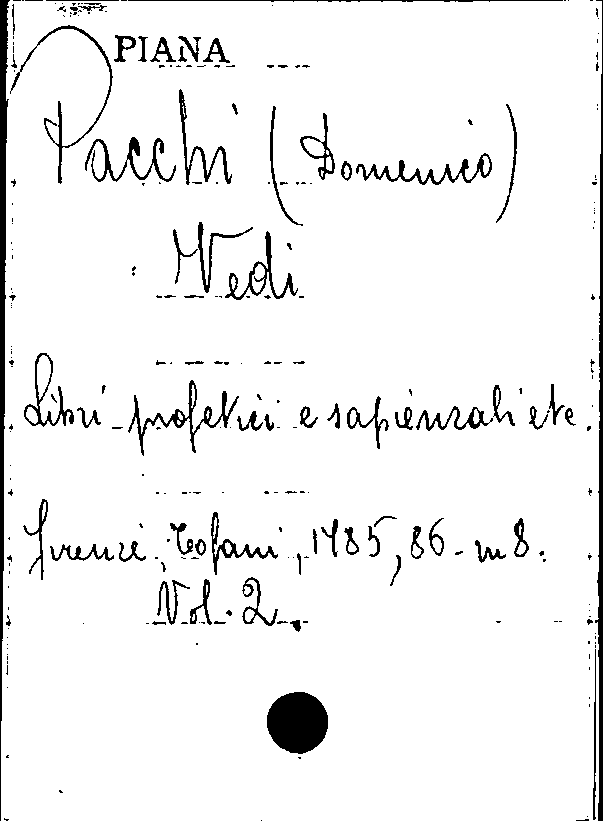 PIANA
Pacchi (Domenico)
Vedi
Libri profetici e sapienzali etc.
Firenze, Tofani, 1785, 86 - in 8.
Vol. 2.